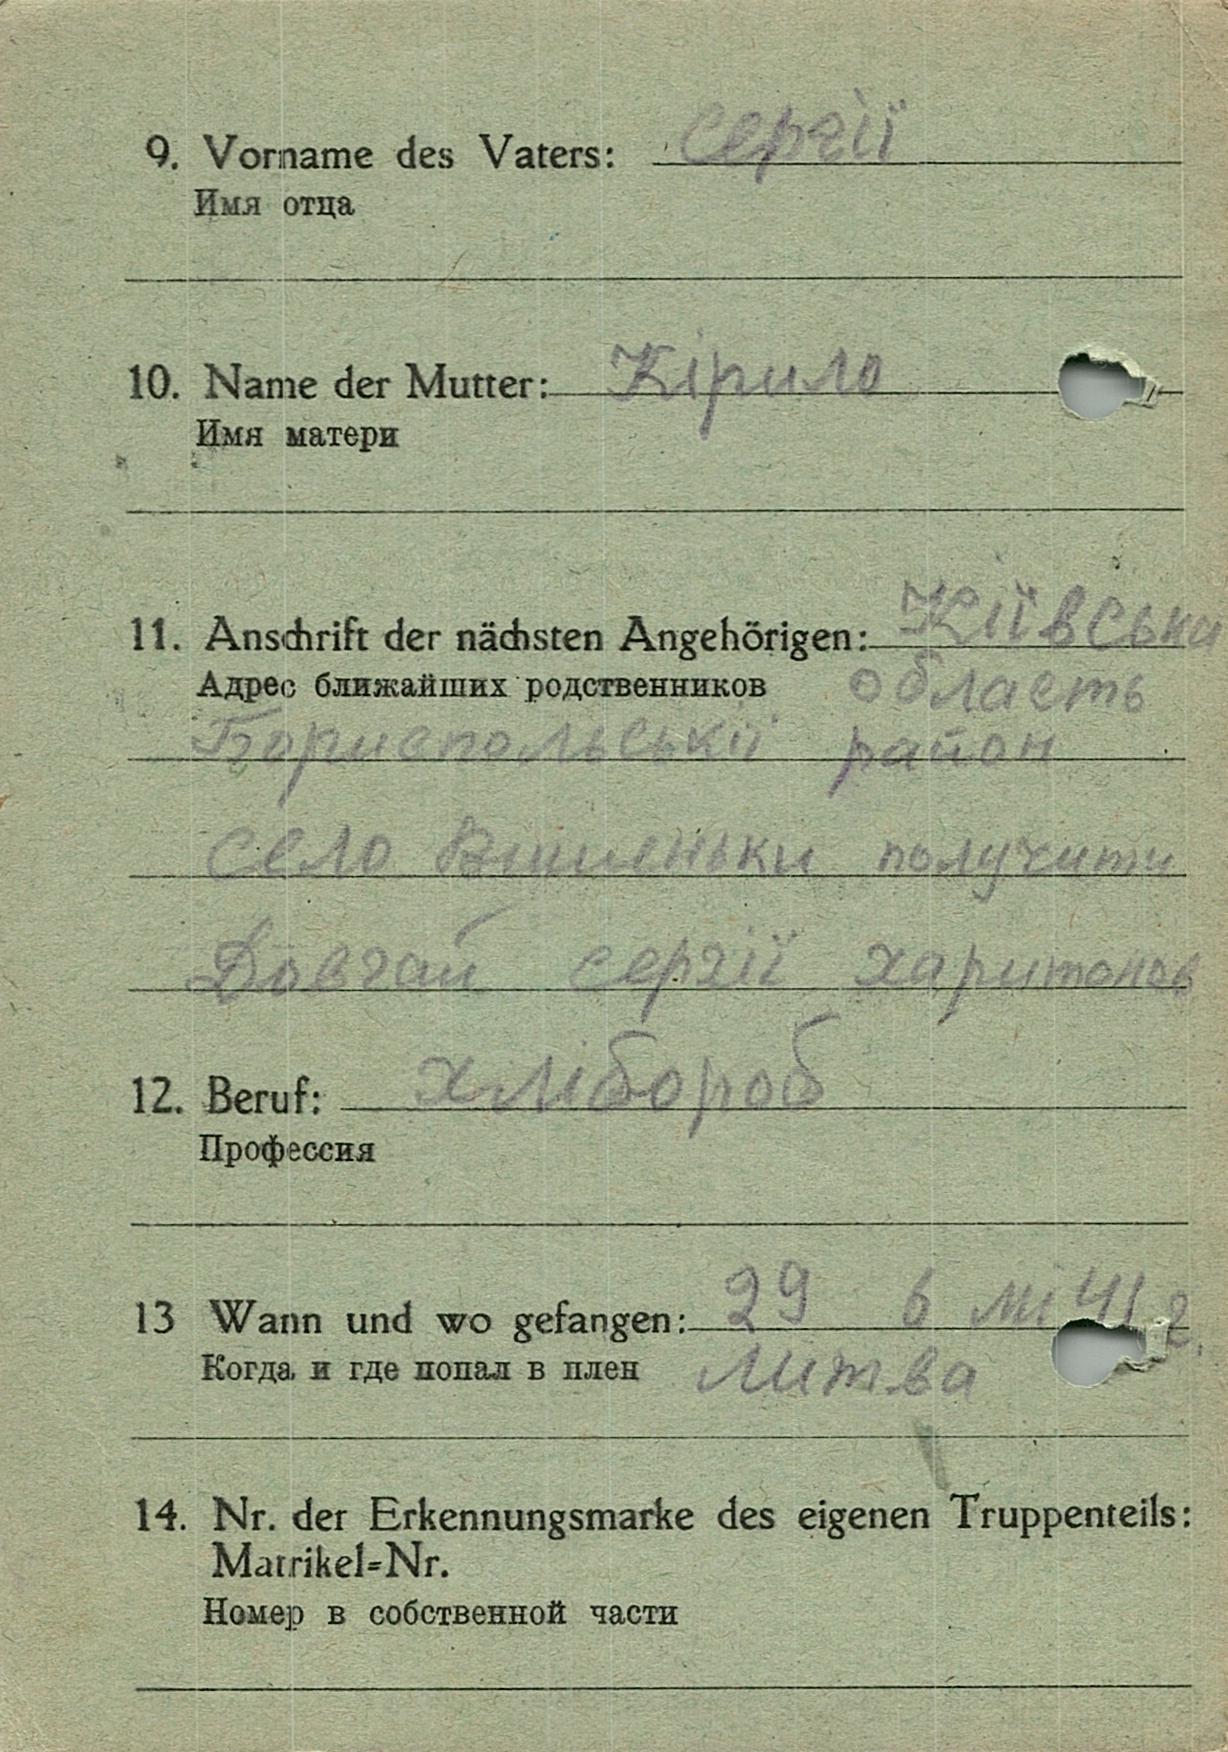 9. Vorname des Vaters: Сергії
Имя отца
10. Name der Mutter: Кірило
Имя матери
11. Anschrift der nächsten Angehörigen: Київська
Адрес ближайших родственников область
Бориспольськії район
село Вишеньки получити
Довгай сергії харитонов
12. Beruf: хлібороб
Профессия
13 Wann und wo gefangen: 29 6 мі 41 г.
Когда и где попал в плен Литва
14. Nr. der Erkennungsmarke des eigenen Truppenteils:
Matrikel=Nr.
Номер в собственной части